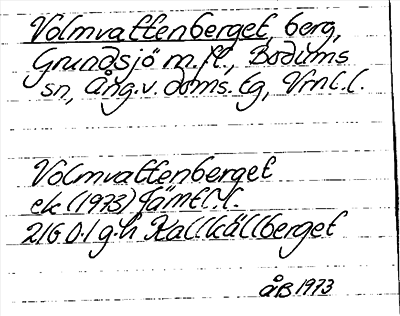 Volmvattenberget, berg,
Grundsjö m.fl., Bodums
sn, Ång.v. doms.tg, Vrnl.l.
Volmvattenberget
ek (1973) Jämtl.l.
21G 0-1 g-h Kallkällberget
ÅB 1973